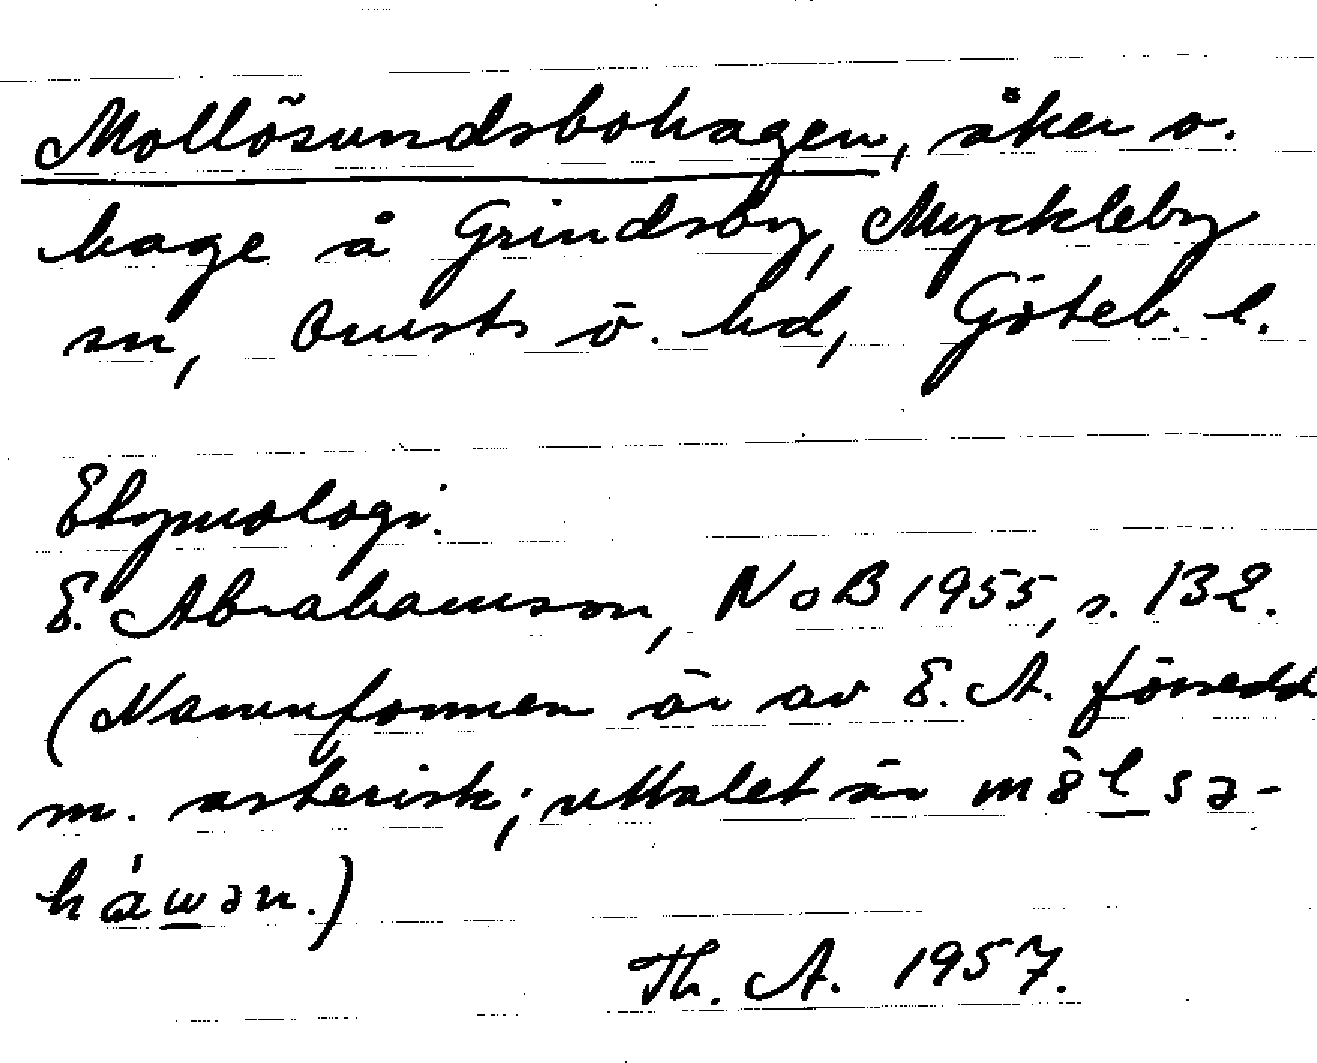 Mollösundsbohagen, åker o.
hage å Grindsby, Myckleby
sn, Orusts ö. hd, Göteb. l.
Etymologi.
E. Abrahamson, NoB 1955, s. 132.
(Namnformen är av E. A. försedd
m. asterisk; uttalet är mò̈lsə-
háwən.)
Th. A. 1957.